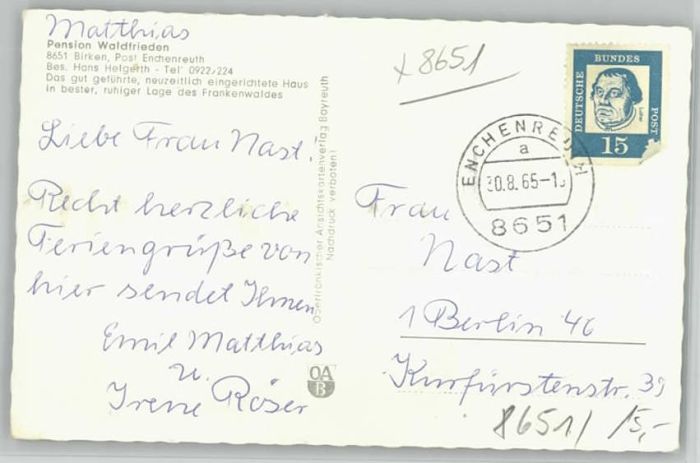 Matthias
Pension Waldfrieden
8651 Birken, Post Enchenreuth
Bes. Hans Helgerth - Tel 0922/224
Das gut geführte, neuzeitlich eingerichtete Haus
in bester, ruhiger Lage des Frankenwaldes
Liebe Frau Nast!
Recht herzliche
Feriengrüße von
hier sendet Ihnen
Emil Matthias
u.
Irene Röser
Oberfränkischer Ansichtskartenverlag Bayreuth
Nachdruck verboten!
OA
B
x 8651
DEUTSCHE
BUNDES
POST
Luther
15
ENCHENREUTH
a
30.8.65-1
8651
Frau
Nast
1 Berlin 46
Kurfürstenstr. 39
8651/ 5,-